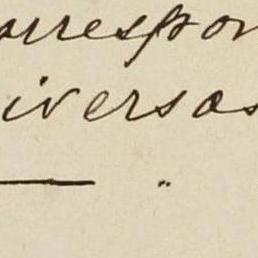 orrespon
iversas
— "